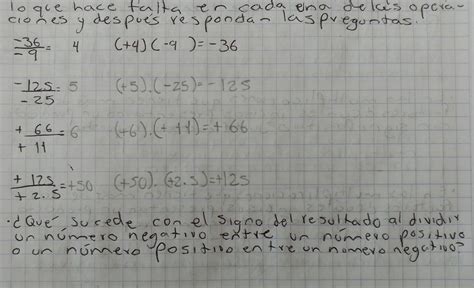 lo que hace falta en cada una de las opera-
ciones y después respondan las preguntas.
-36/-9 = 4 (+4)(-9)=-36
-125/-25 = 5 (+5).(-25)=-125
+66/+11 = 6 (+6).(+11)=+66
+125/+2.5 = +50 (+50).(+2.5)=+125
·¿Qué sucede con el signo del resultado al dividir
un número negativo entre un número positivo
o un número positivo entre un número negativo?